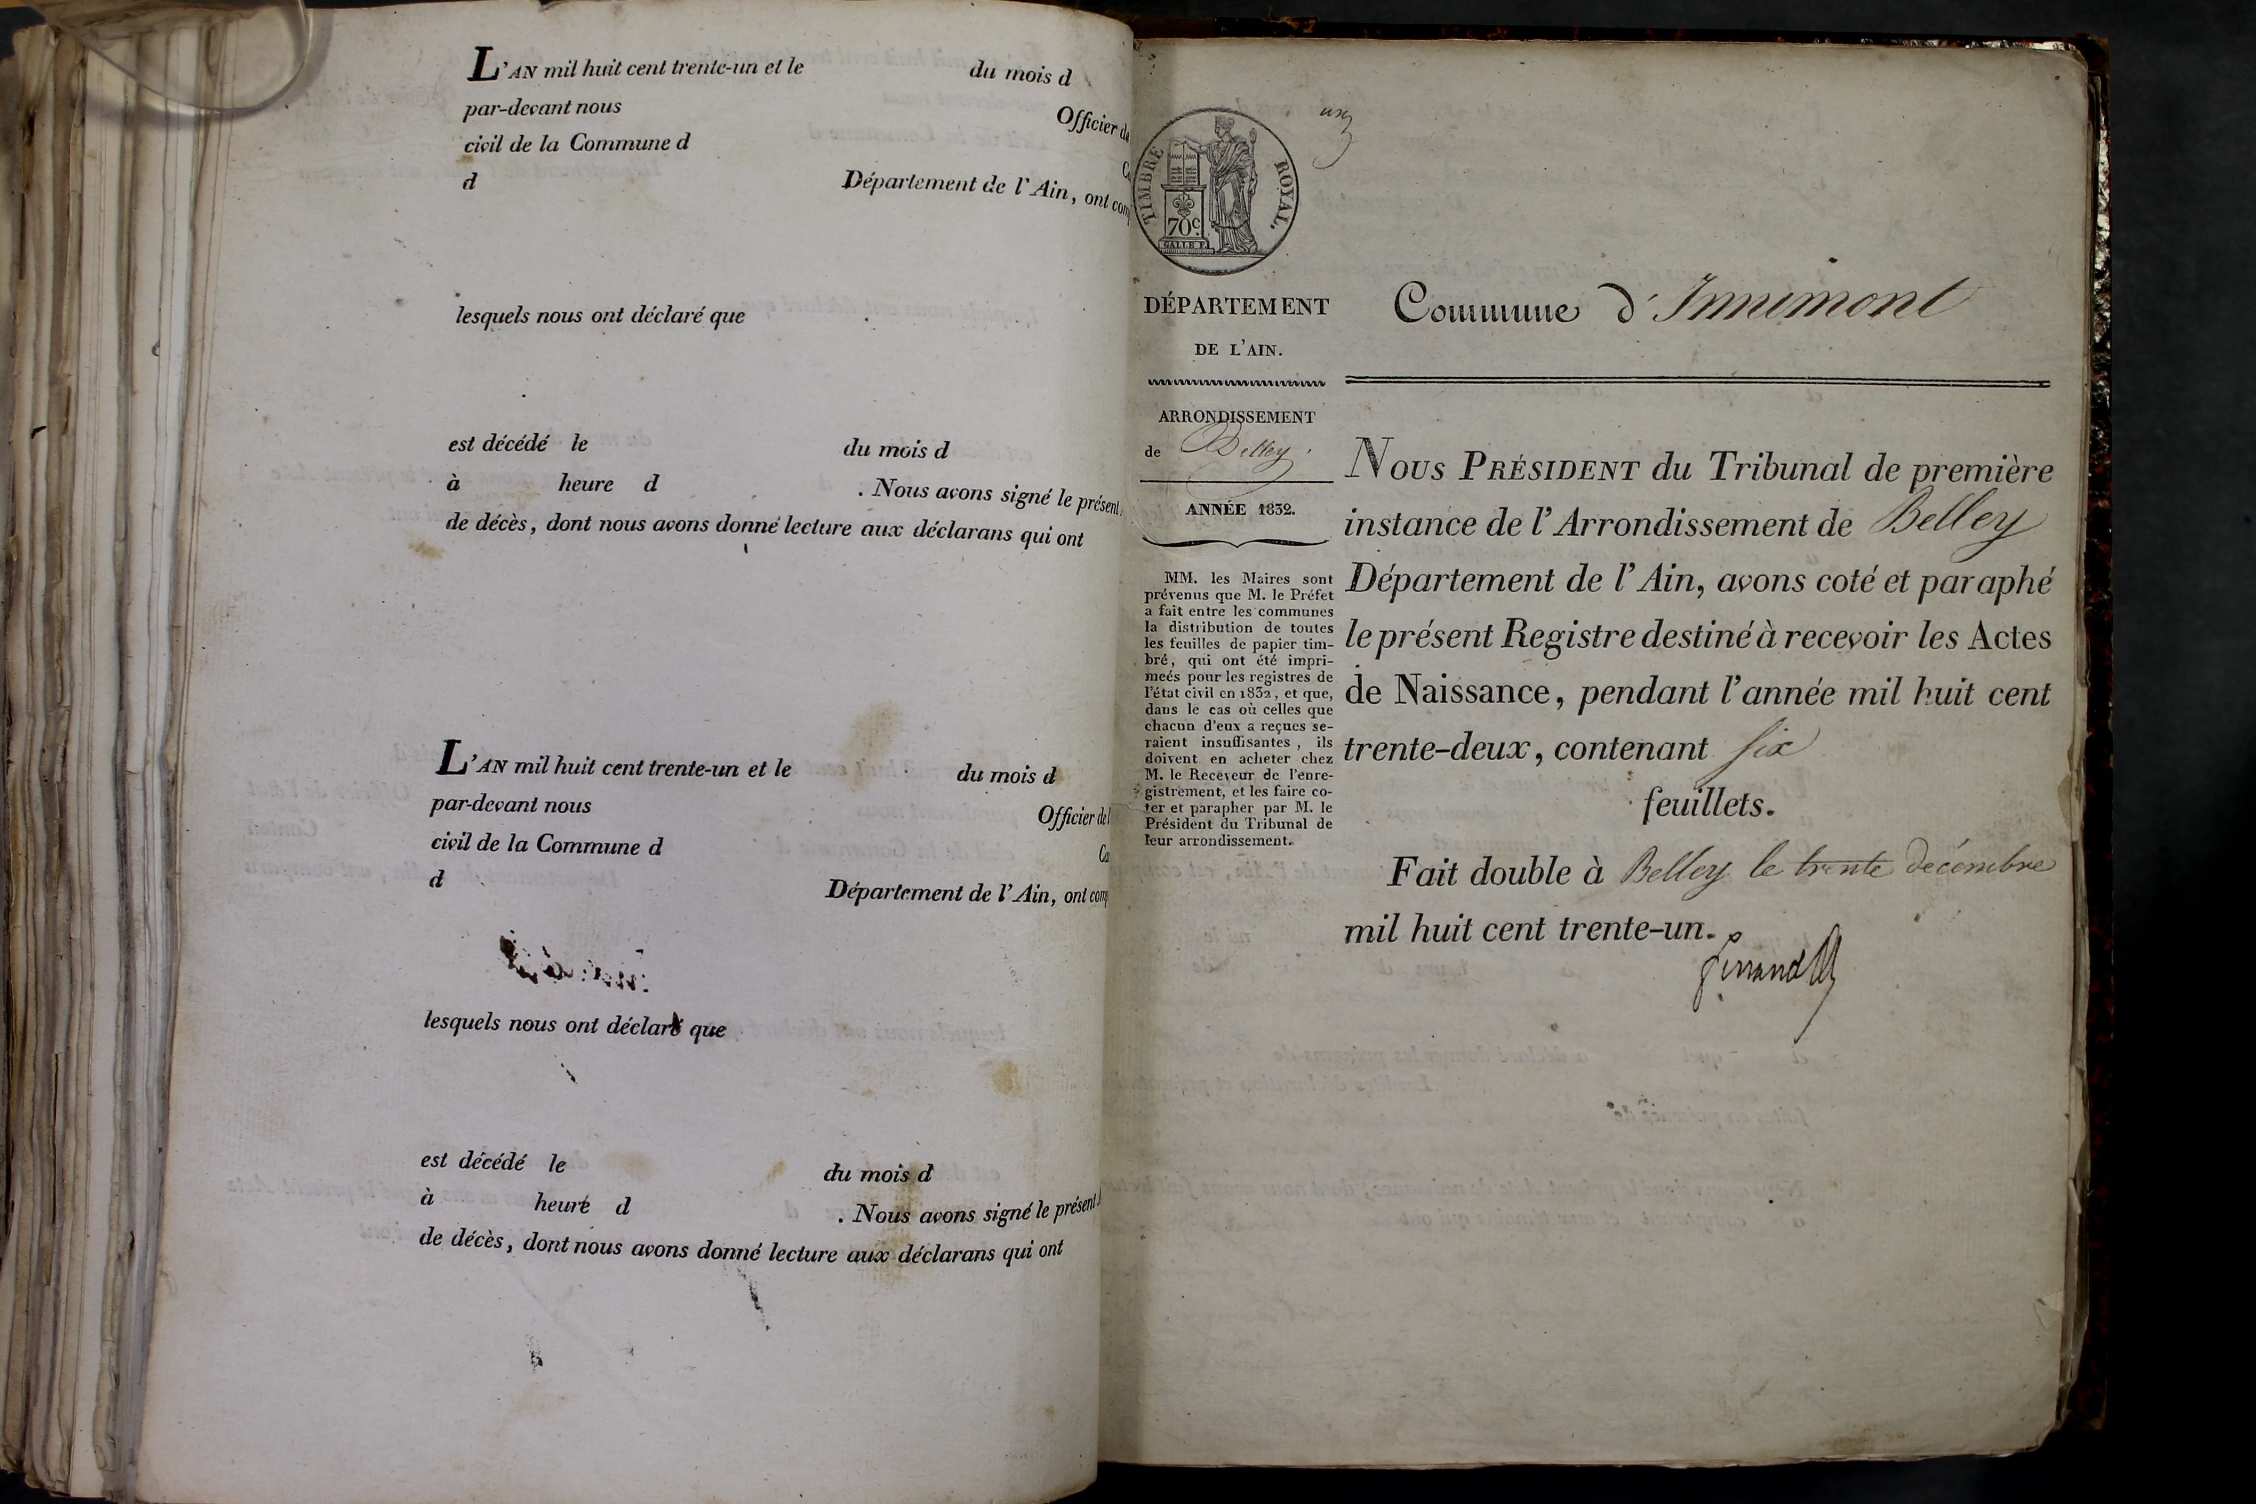 L'AN mil huit cent trente-un et le du mois d
par-devant nous Officier de
civil de la Commune d
d Département de l'Ain, ont comp
lesquels nous ont déclaré que
est décédé le du mois d
à heure d . Nous avons signé le présent
de décès, dont nous avons donné lecture aux déclarans qui ont
L'AN mil huit cent trente-un et le du mois d
par-devant nous Officier de l
civil de la Commune d Ca
d Département de l'Ain, ont comp
lesquels nous ont déclaré que
est décédé le du mois d
à heure d . Nous avons signé le présent
de décès, dont nous avons donné lecture aux déclarans qui ont
TIMBRE ROYAL.
70c.
DÉPARTEMENT
DE L'AIN.
ARRONDISSEMENT
de Belley
ANNÉE 1832.
MM. les Maires sont
prévenus que M. le Préfet
a fait entre les communes
la distribution de toutes
les feuilles de papier tim-
bré, qui ont été impri-
meés pour les registres de
l'état civil en 1832, et que,
dans le cas où celles que
chacun d'eux a reçues se-
raient insuffisantes, ils
doivent en acheter chez
M. le Receveur de l'enre-
gistrement, et les faire co-
ter et parapher par M. le
Président du Tribunal de
leur arrondissement.
Commune d'Innimont
NOUS PRÉSIDENT du Tribunal de première
instance de l'Arrondissement de Belley
Département de l'Ain, avons coté et paraphé
le présent Registre destiné à recevoir les Actes
de Naissance, pendant l'année mil huit cent
trente-deux, contenant six
feuillets.
Fait double à Belley le trente décembre
mil huit cent trente-un.